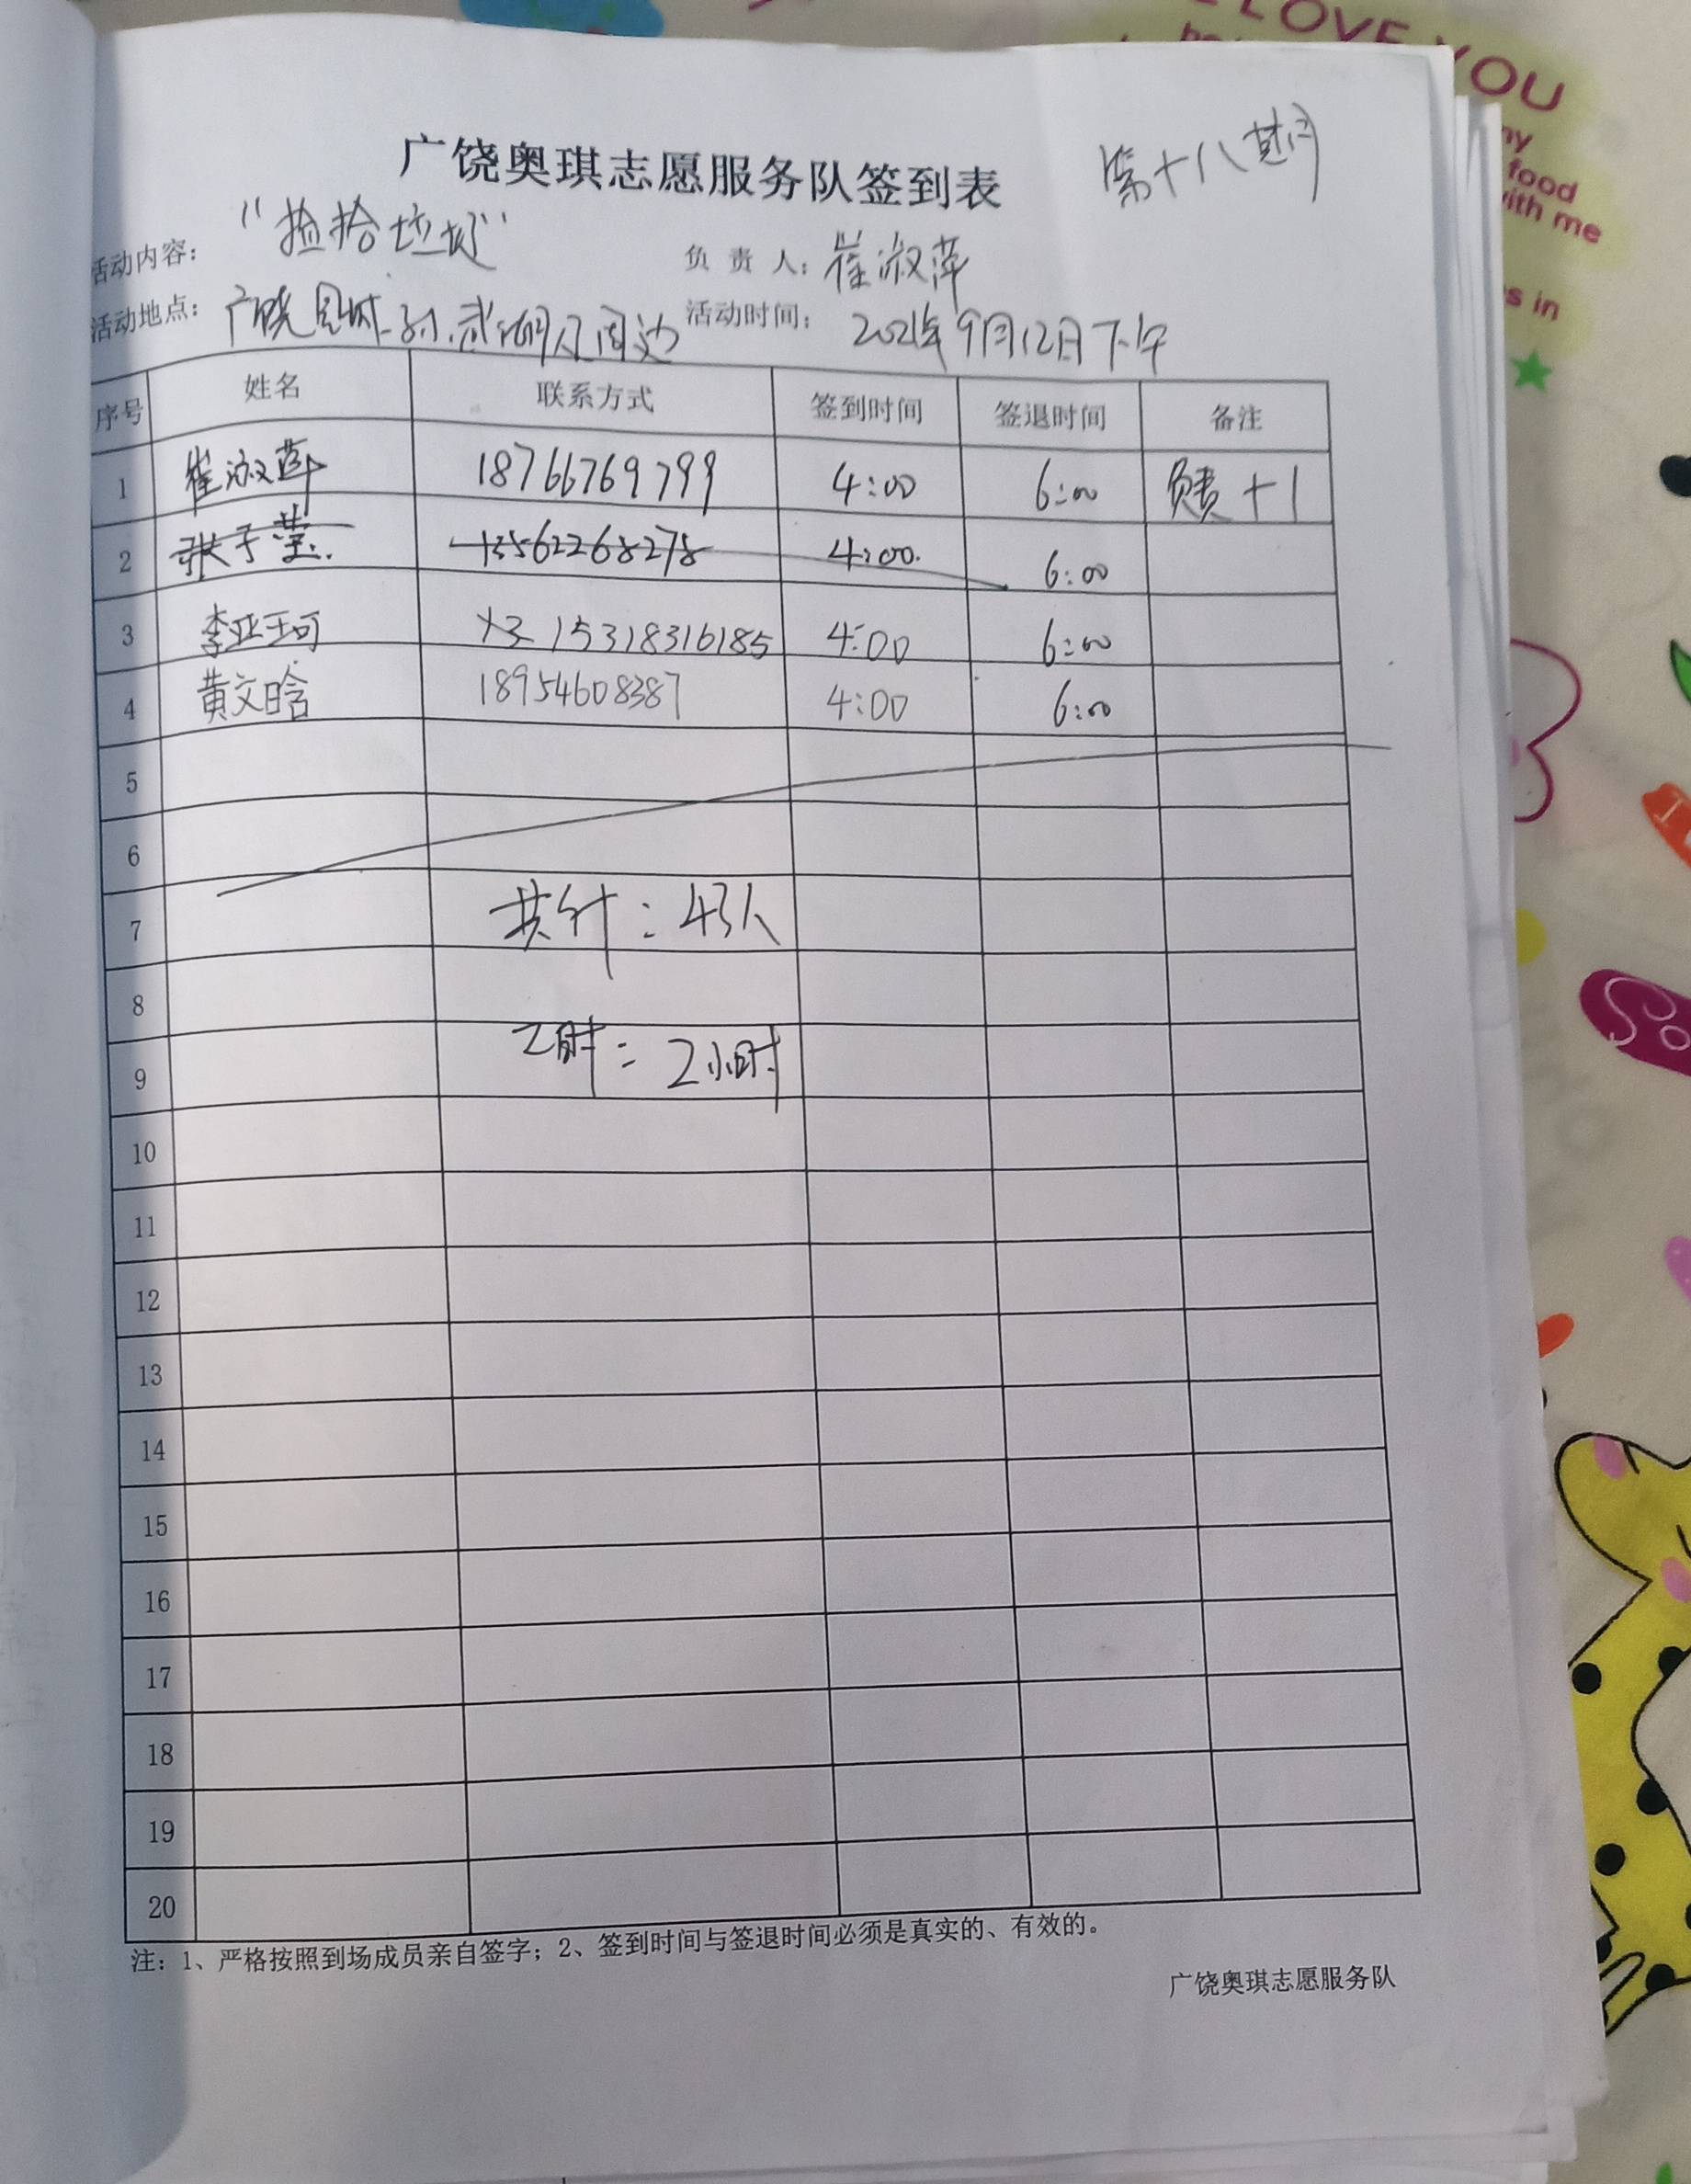 LOVE YOU
my
food
with me
s in
广饶奥琪志愿服务队签到表 第十八期
活动内容： "捡拾垃圾" 负责人：崔淑萍
活动地点： 广饶 孙武湖及周边 活动时间： 2021年9月12日下午
序号 姓名 联系方式 签到时间 签退时间 备注
1 崔淑萍 18766769799 4:00 6:00 负责+1
2 张子莹 13562268278 4:00. 6:00
3 李亚珂 15318316185 4:00 6:00
4 黄文晗 18954608387 4:00 6:00
5
6
7 共计：43人
8
9 工时：2小时
10
11
12
13
14
15
16
17
18
19
20
注：1、严格按照到场成员亲自签字；2、签到时间与签退时间必须是真实的、有效的。
广饶奥琪志愿服务队